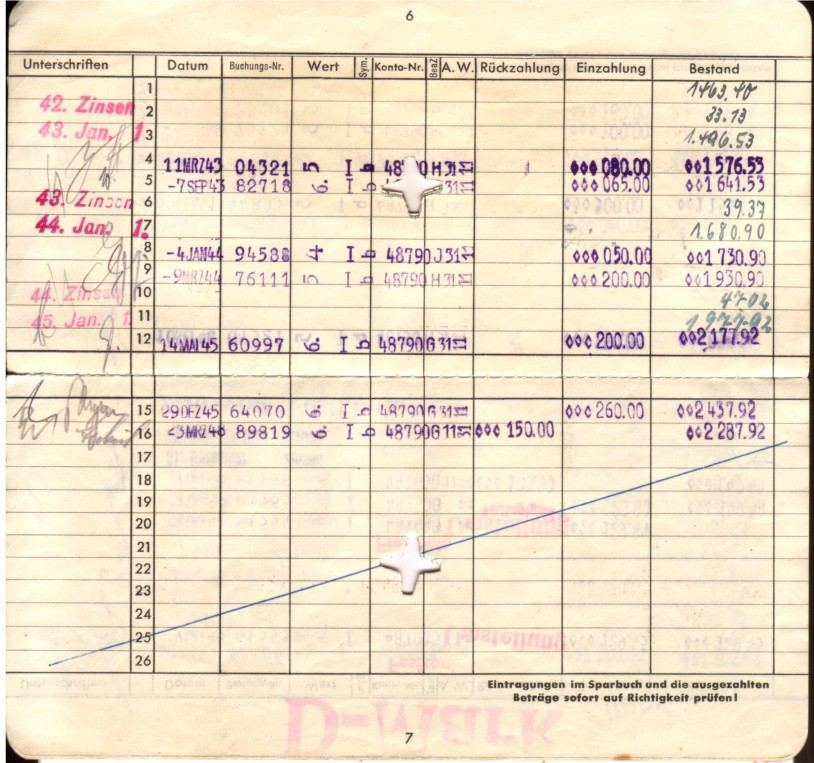 6
Unterschriften Datum Buchungs-Nr. Wert Sym. Konto-Nr. BeaZ A.W. Rückzahlung Einzahlung Bestand
1 1463.40
42. Zinsen 2 33.13
43. Jan. 1. 3 1.496.53
4 11MRZ43 04321 5 I b 48790 H 31 000 080.00 001 576.53
5 -7SEP43 82718 6. I b 31 000 065.00 001 641.53
43. Zinsen 6 39.37
44. Jan. 1. 7 1.680.90
8 -4JAN44 94588 4 I b 48790 J 31 000 050.00 001 730.90
9 -9MRZ44 76111 5 I b 48790 H 31 000 200.00 001 930.90
44. Zinsen 10 47.02
45. Jan. 1. 11 1977.92
12 14MAI45 60997 6. I b 48790 G 31 000 200.00 002 177.92
15 29DEZ45 64070 6. I b 48790 G 31 000 260.00 002 437.92
16 -23MRZ48 89819 6. I b 48790 G 11 000 150.00 002 287.92
17
18
19
20
21
22
23
24
25
26
Eintragungen im Sparbuch und die ausgezahlten
Beträge sofort auf Richtigkeit prüfen!
7